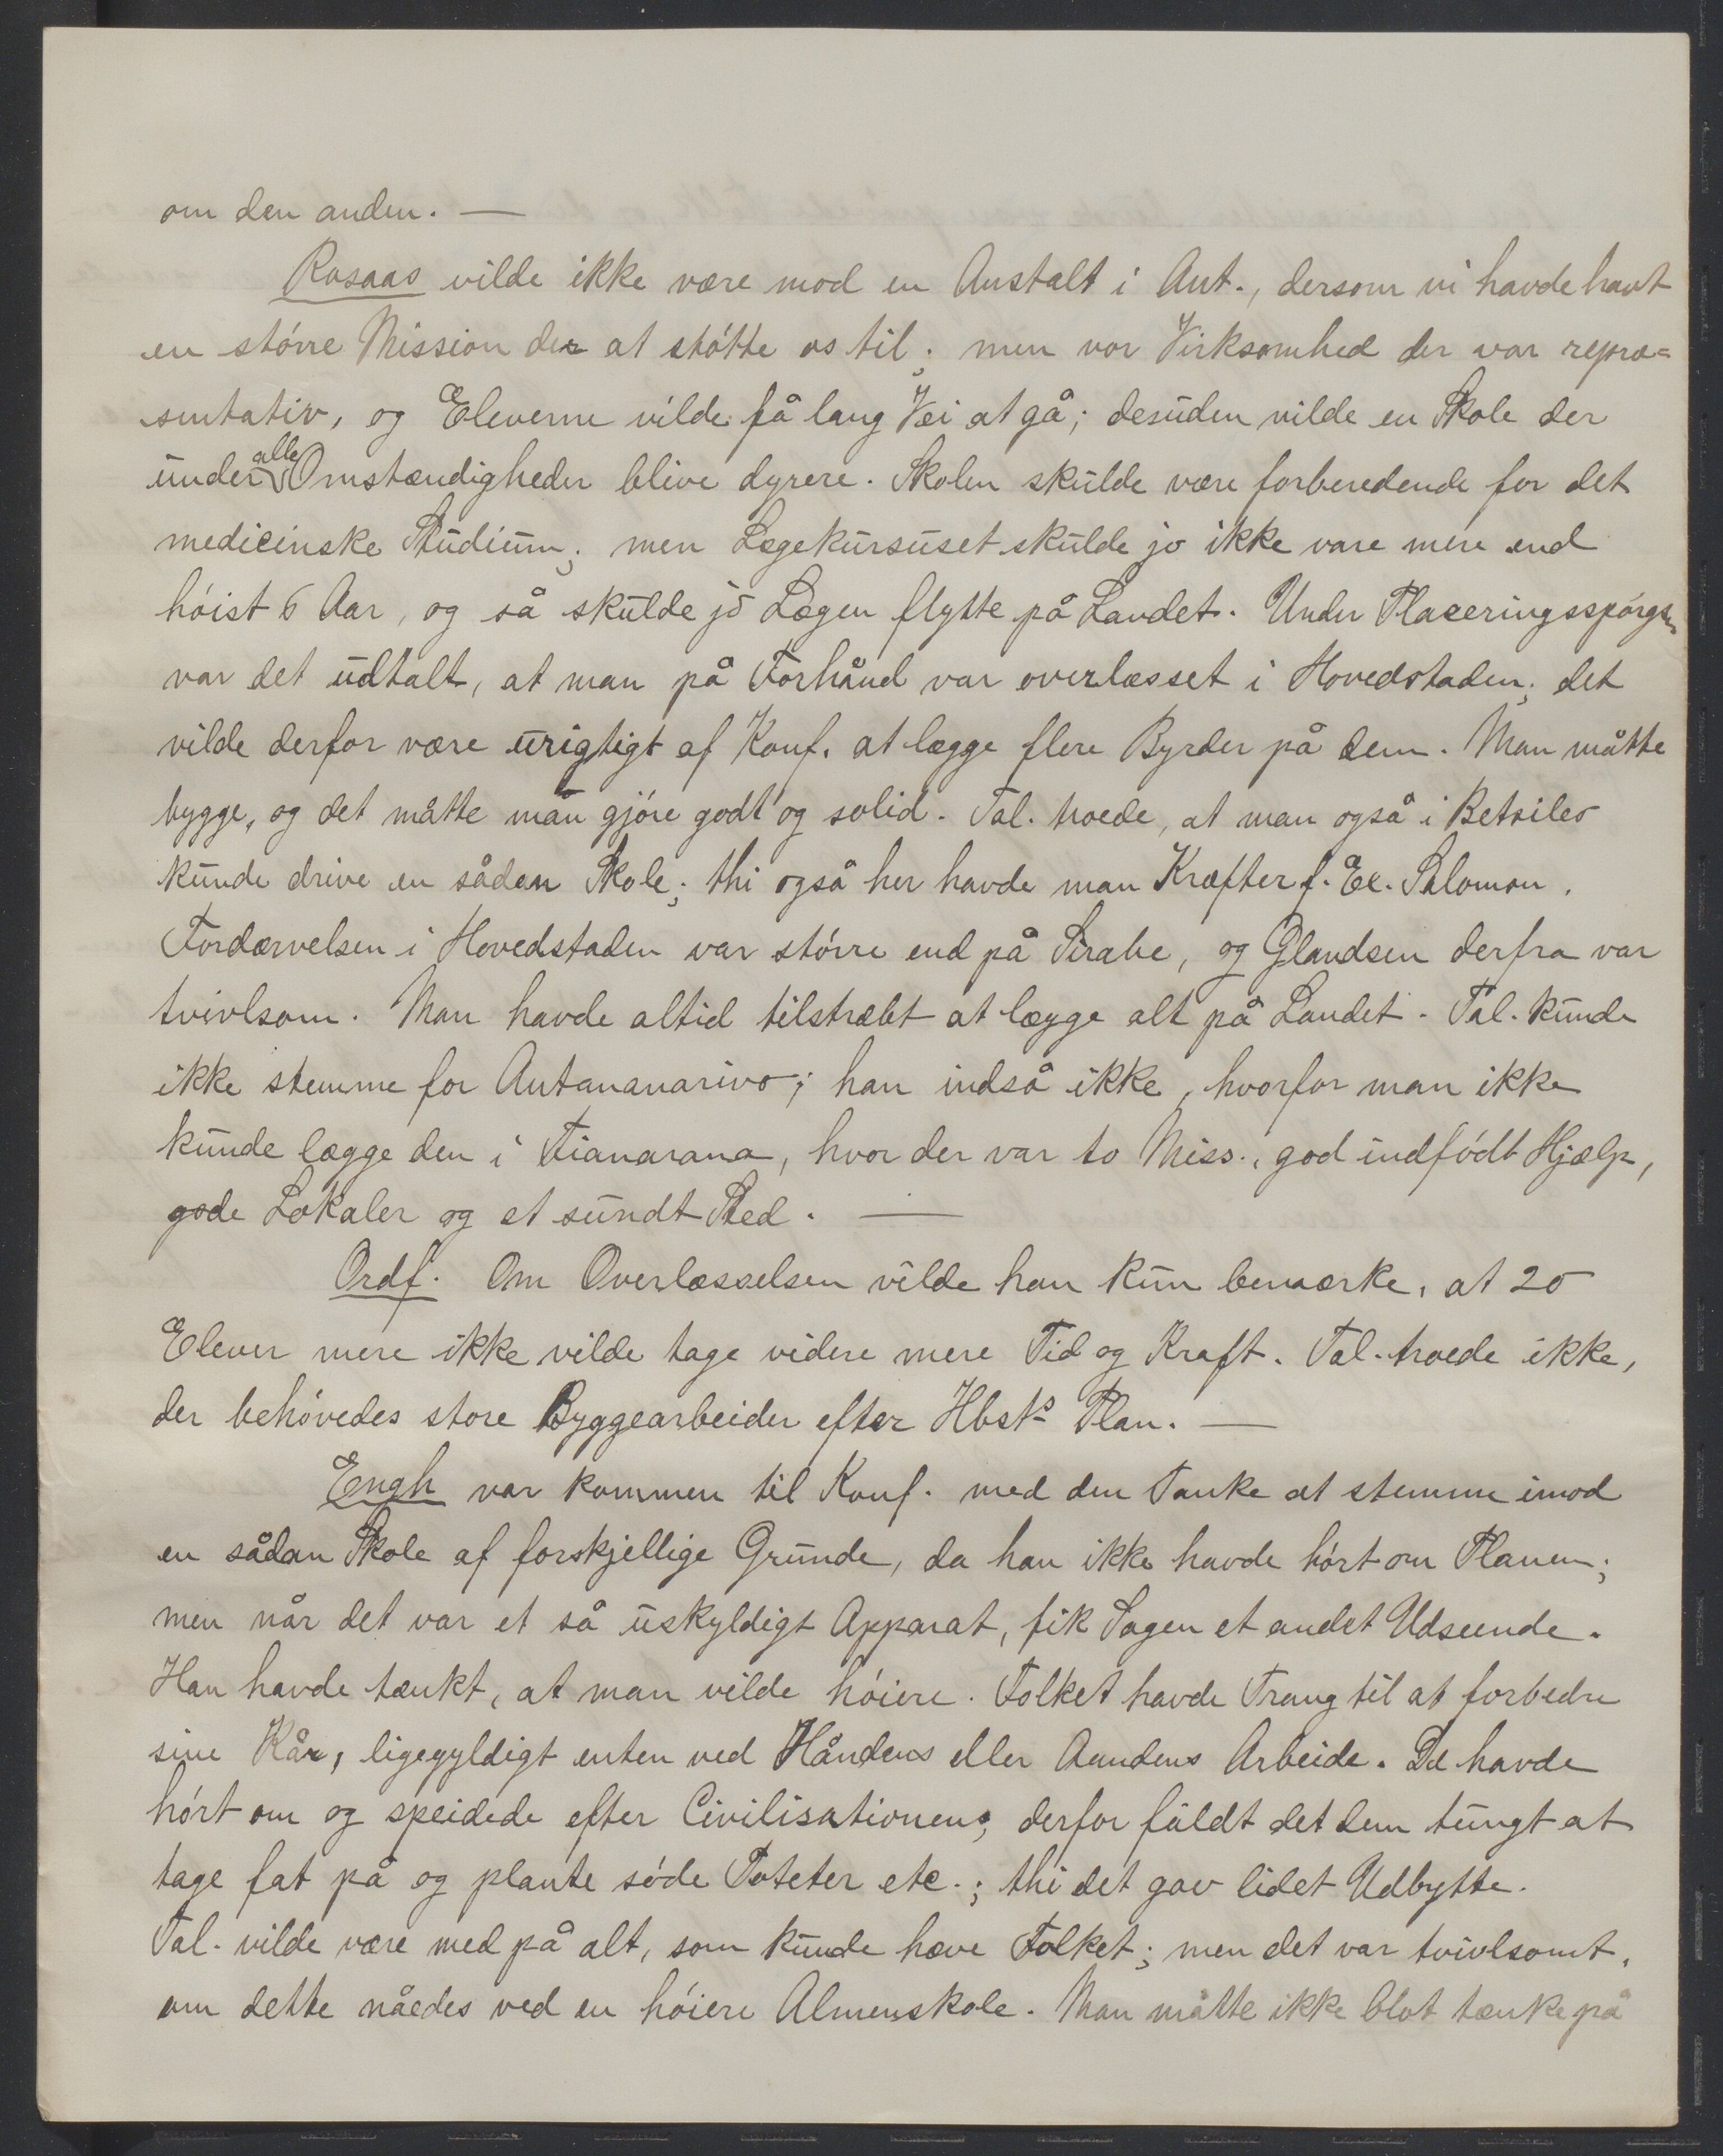 om den anden. —
Rosaas vilde ikke være mod en Anstalt i Ant., dersom vi havde havt
en større Mission der at støtte os til; men vor Virksomhed der var repræ=
sentativ, og Eleverne vilde få lang Vei at gå; desuden vilde en Skole der
under alle Omstændigheder blive dyrere. Skolen skulde være forberedende for det
medicinske Studium; men Lægekursuset skulde jo ikke vare mere end
høist 6 Aar, og så skulde jo Lægen flytte på Landet. Under Placeringsspørgsm
var det udtalt, at man på Forhånd var overlæsset i Hovedstaden; det
vilde derfor være urigtigt af Konf. at lægge flere Byrder på dem. Man måtte
bygge, og det måtte man gjøre godt og solid. Tal. troede, at man også i Betsileo
kunde drive en sådan Skole; thi også her havde man Kræfter f. Ex. Salomon.
Fordærvelsen i Hovedstaden var større end på Sirabe, og Glandsen derfra var
tvivlsom. Man havde altid tilstræbt at lægge alt på Landet. Tal. kunde
ikke stemme for Antananarivo; han indså ikke, hvorfor man ikke
kunde lægge den i Fianarana, hvor der var to Miss., god indfødt Hjælp,
gode Lokaler og et sundt Sted. —
Ordf. Om Overlæsselsen vilde han kun bemærke, at 20
Elever mere ikke vilde tage videre mere Tid og Kraft. Tal. troede ikke,
der behøvedes store Byggearbeider efter Hbsts Plan. —
Engh var kommen til Konf. med den Tanke at stemme imod
en sådan Skole af forskjellige Grunde, da han ikke havde hørt om Planen;
men når det var et så uskyldigt Apparat, fik Sagen et andet Udseende.
Han havde tænkt, at man vilde høiere. Folket havde Trang til at forbedre
sine Kår, ligegyldigt enten ved Håndens eller Aandens Arbeide. De havde
hørt om og speidede efter Civilisationen; derfor faldt det dem tungt at
tage fat på og plante søde Poteter etc.; thi det gav lidet Udbytte.
Tal. vilde være med på alt, som kunde hæve Folket; men det var tvivlsomt,
om dette nåedes ved en høiere Almenskole. Man måtte ikke blot tænke på